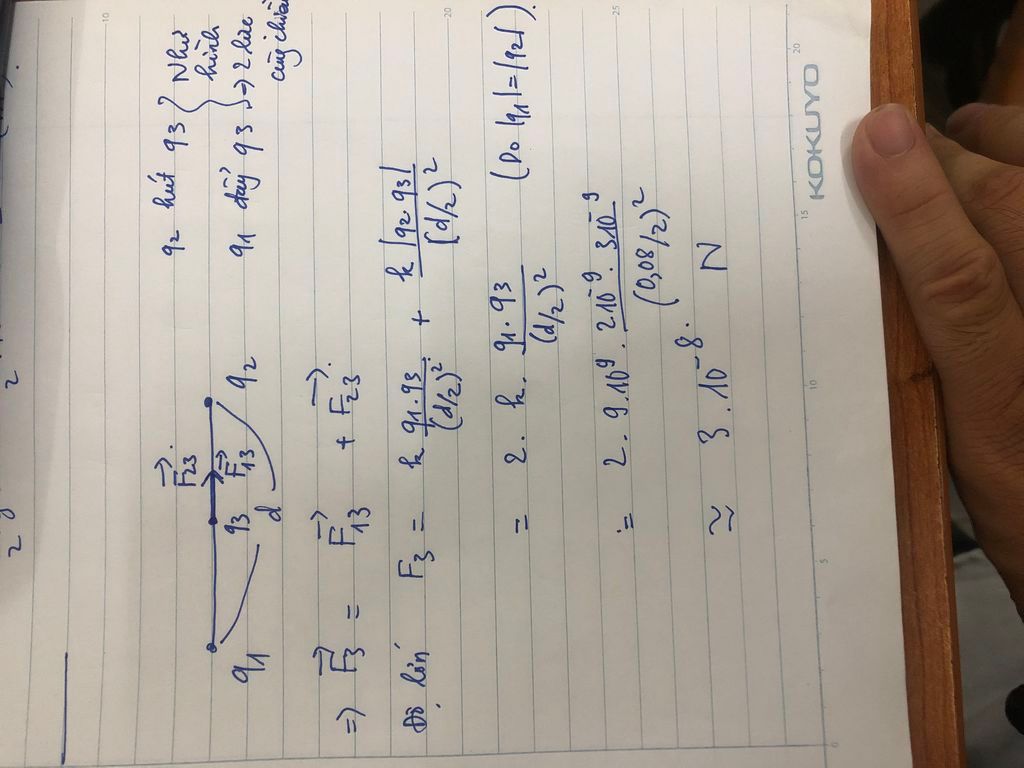 F₂₃
q1 q3 F₁₃ q2
d
q2 hút q3 } Như hình
q1 đẩy q3 } → 2 lực cùng chiều
=> F₃ = F₁₃ + F₂₃.
Độ lớn F₃ = k q1.q3/(d/2)² + k |q2.q3|/(d/2)²
= 2. k. q1.q3/(d/2)² (Do |q1|=|q2|).
= 2. 9.10⁹. 2.10⁻⁹. 3.10⁻⁹/(0,08/2)²
≃ 3.10⁻⁸. N
KOKUYO